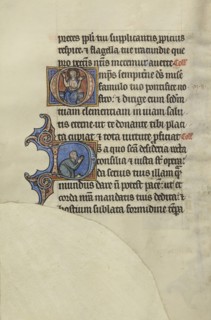 preces ppli tui supplicantis ppitius
respice: & flagella tue iracundie que
pro pctis nris meremur auerte
mps sempiterne ds mise
famulo tuo pontifice no
stro: & dirige eum scdm
tuam clementiam in uiam salu
tis eterne ut te donante tibi placi
ta cupiat & tota uirtute pficiat
s a quo scā desideria recta
consilia & iusta st opera:
da seruis tuis illam quam
mundus dare non potest pacem: ut &
corda nra mandatis tuis dedita: &
hostium sublata formidine tpra